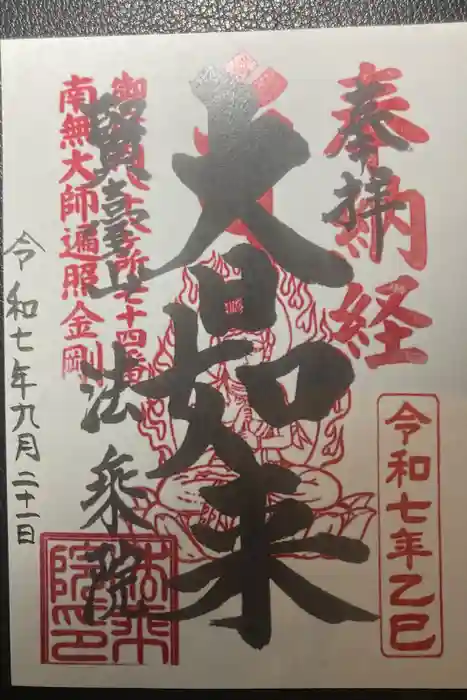 奉納経
奉拝
令和七年乙巳
大日如来
八十八ヶ所七十四番
南無大師遍照金剛
賢臺山 法乗院
法乗院印
令和七年九月二十一日